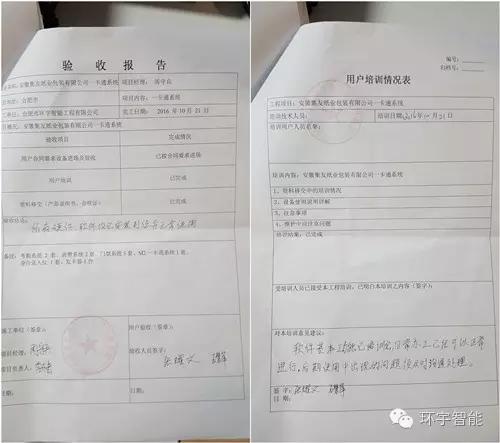 验 收 报 告
安徽集友纸业包装有限公司一卡通系统
项目经理:
合肥市
项目内容: 一卡通系统
合肥市环宇智能工程有限公司
完工日期: 2016 年 10 月 21 日
安徽集友纸业包装有限公司一卡通系统
验收项目
完成情况
用户合同要求设备进场及验收
已按合同要求进场
用户培训
已完成
资料移交(产品说明书、合格证)
已完成
验收总结:
所有硬件、软件均已安装到位并正常使用
备注: 考勤系统 2 套、消费系统 2 套、门禁系统 5 套、
发卡器 1 台
施工单位(签章):
用户验收(签章):
项目经理:
验收人员签字:
项目负责人:
日期:
日期:
编号:
归档号:
用户培训情况表
工程项目: 安徽集友纸业包装有限公司一卡通系统
培训技术人员:
培训日期: 2016年10月21日
培训用户人员名单:
培训内容: 安徽集友纸业包装有限公司一卡通系统
1、资料移交中的培训情况
2、设备使用说明详解
3、注意事项
4、维护中应注意问题
培训结果: 已完成
受培训人员已接受本工程培训,已明白本培训之内容(签字):
对本培训意见建议:
软件基本功能已培训完,日常办工已经可以正常
进行,后期使用中出现的问题须及时沟通处理。
签 字:
日 期:
环宇智能